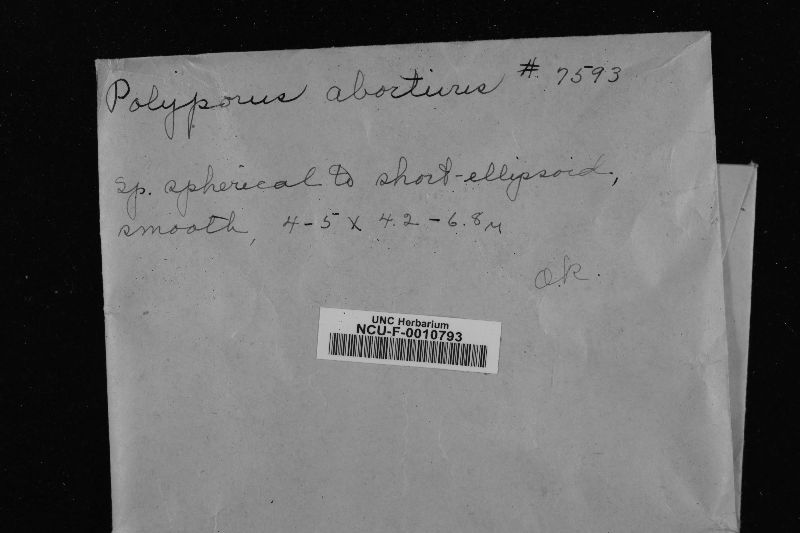 Polyporus abortivus # 7593
Sp. spherical to short-ellipsoid,
smooth, 4-5 x 4.2-6.8 µ
O.K.
UNC Herbarium
NCU-F-0010793